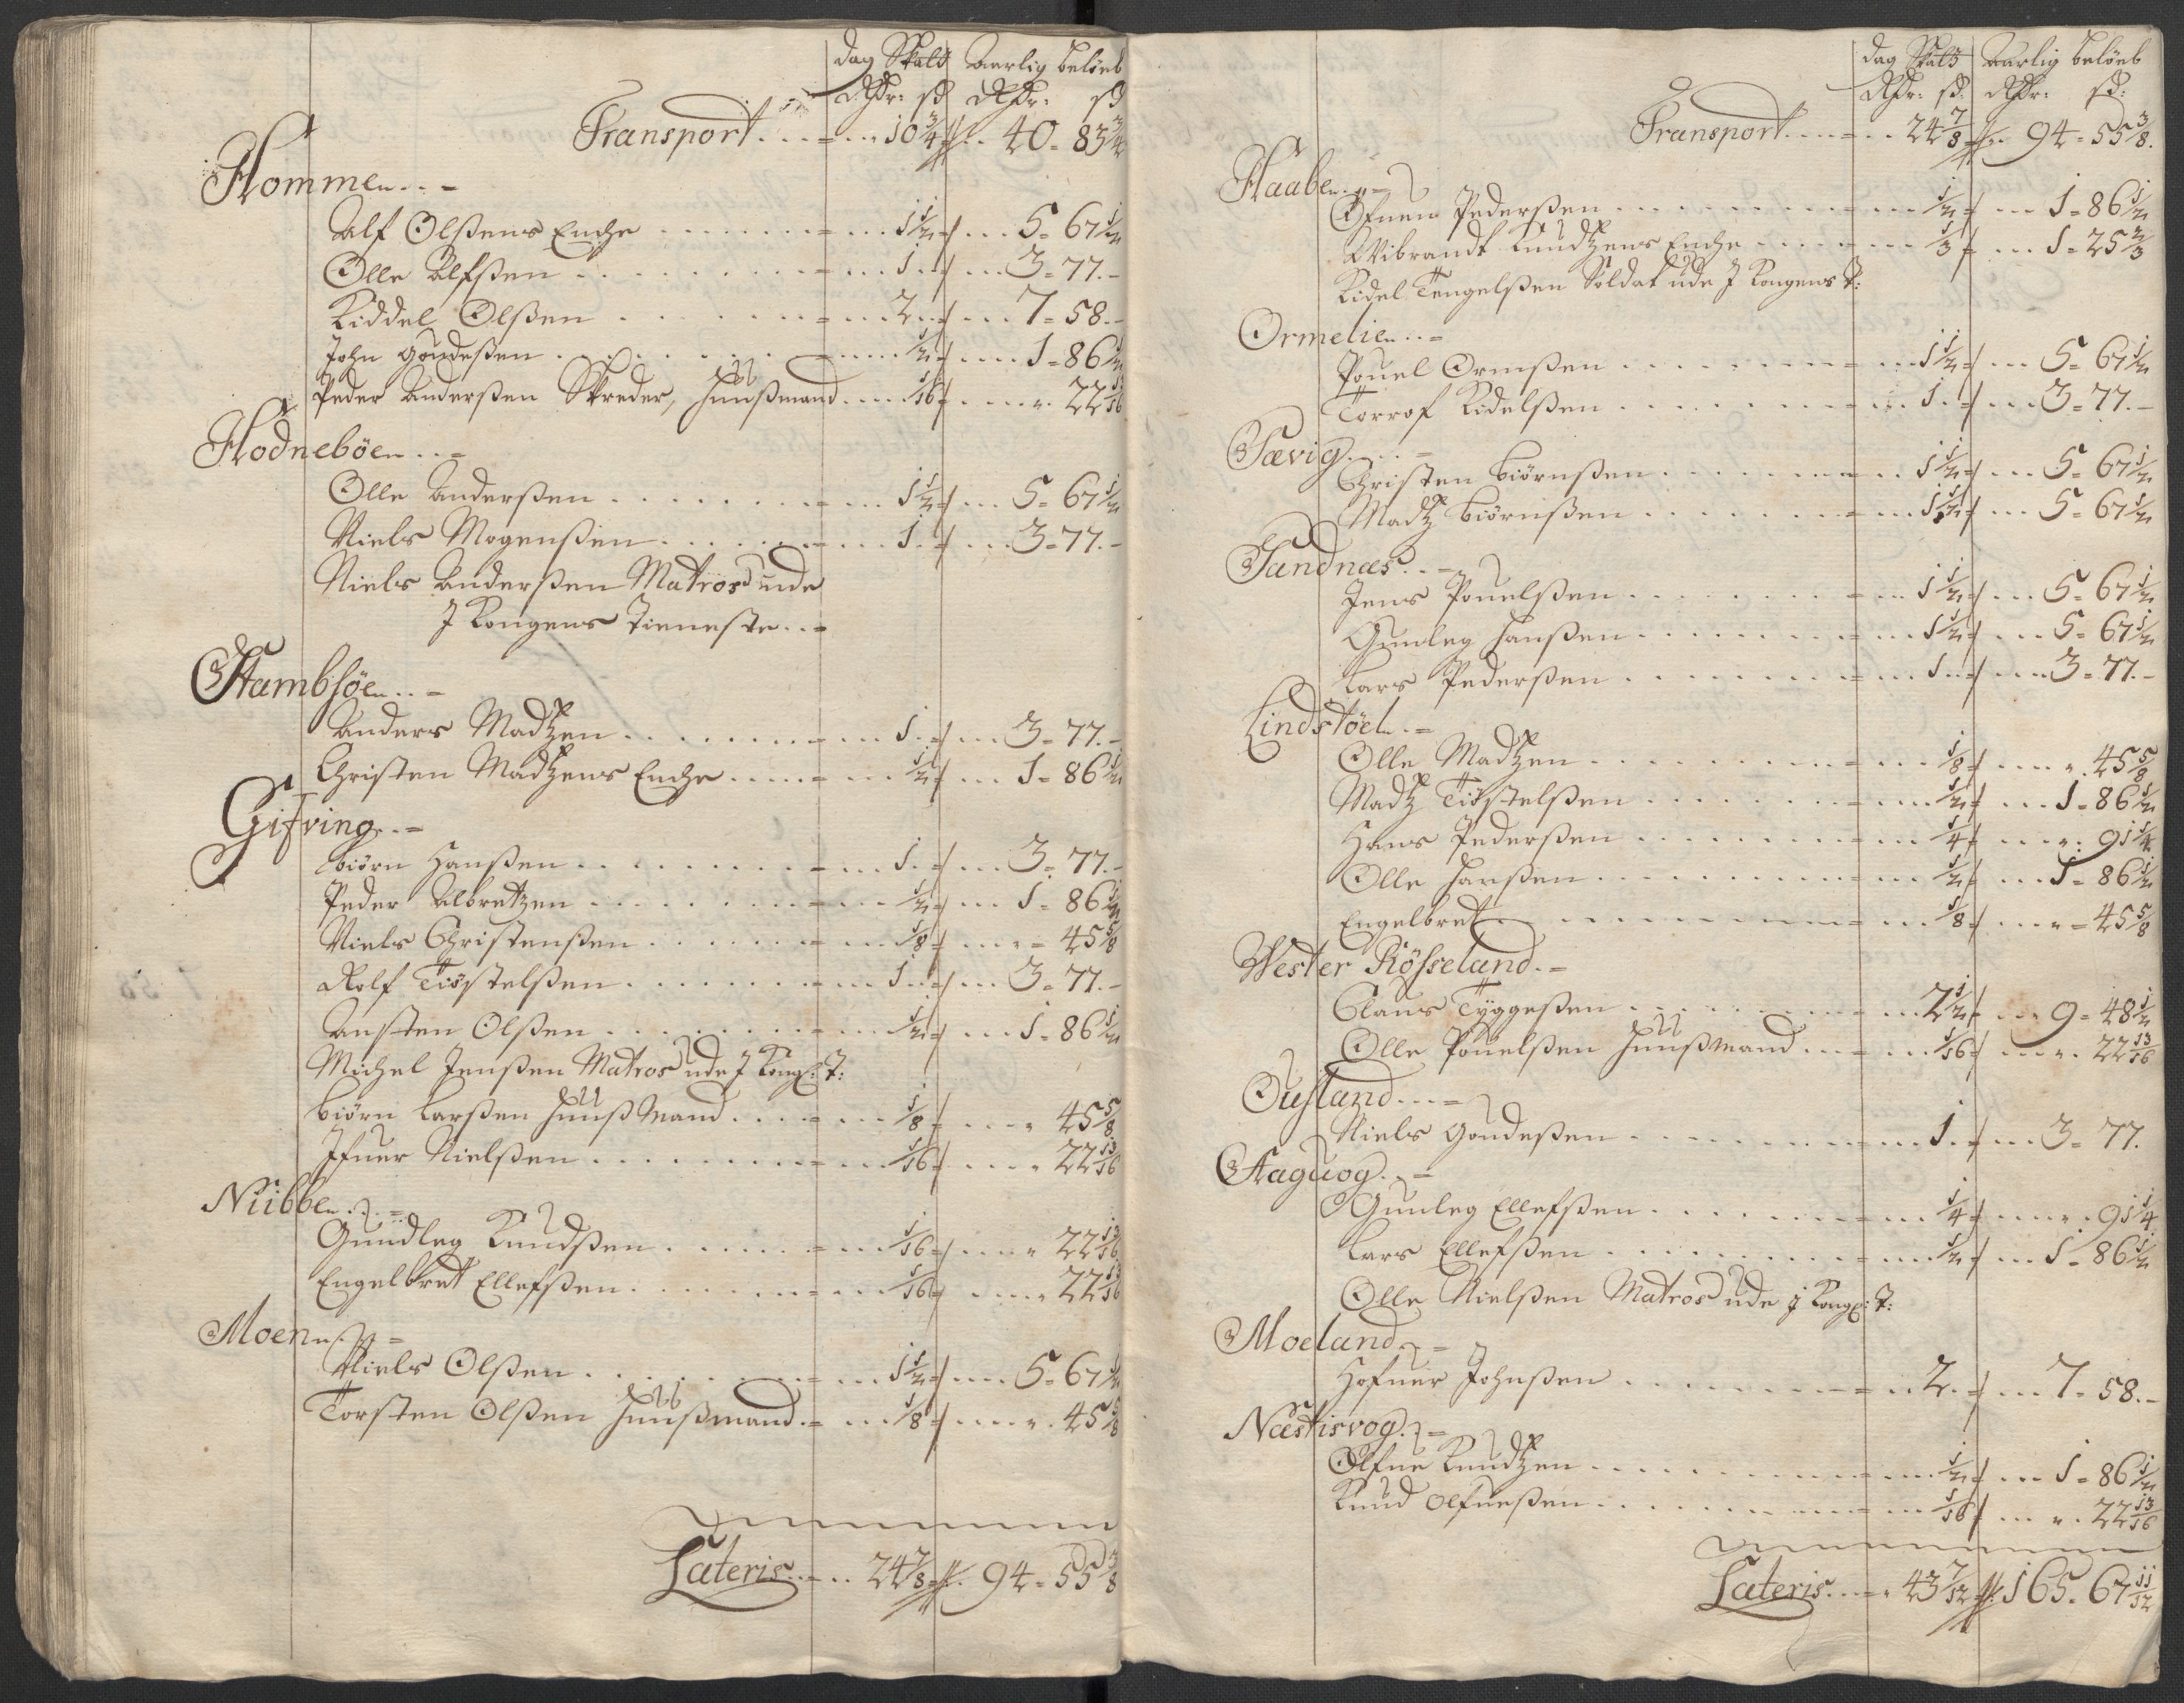 Dag Skatt Aarlig beløeb
Rdr: ß Rdr: ß
Transport . . . = . . . 10 3/4 . . 40 = 83 3/4
Hommen . . =
Alf Olßens Enche . . . = . . . 1 1/2 . . . 5 = 67 1/2
Olle Alfßen . . . = . . . 1 . . . 3 = 77 . =
Kiddel Olßen . . . = . . . 2 . . . 7 = 58 . =
John Goudeßen . . . = . . . 1/2 . . . 1 = 86 1/2
Peder Anderßen Skreder, Huußmand . . . 1/16 . . . 22 13/16
Hodnebøen . . =
Olle Anderßen . . . = . . . 1 1/2 . . . 5 = 67 1/2
Niels Mogenßen . . . = . . . 1 . . . 3 = 77 . =
Niels Anderßen Matros ude
J Kongens Tieneste . . =
Stambsøen . . =
Anders Madtzen . . . = . . . 1 . . . 3 = 77 . =
Christen Madtzens Enche . . . = . . . 1/2 . . . 1 = 86 1/2
Gifring . . =
biørn Hanßen . . . = . . . 1 . . . 3 = 77 . =
Peder Albretzen . . . = . . . 1/2 . . . 1 = 86 1/2
Niels Christenßen . . . = . . . 1/8 . . . = 45 5/8
Rolf Tiøstelßen . . . = . . . 1 . . . 3 = 77 . =
Ansten Olßen . . . = . . . 1/2 . . . 1 = 86 1/2
Michel Jenßen Matros ude J Kong: T:
biørn Larßen Huuß Mand . . . = . . . 1/8 . . . 45 5/8
Ifuer Nielßen . . . = . . . 1/16 . . . 22 13/16
Nübben . . =
Gundleg Knudßen . . . = . . . 1/16 . . . 22 13/16
Engelbret Ellefßen . . . = . . . 1/16 . . . 22 13/16
Moen . . =
Niels Olßen . . . = . . . 1 1/2 . . . 5 = 67 1/2
Torsten Olßen Huußmand . = . . . 1/8 . . . 45 5/8
Lateris . . = . . 24 7/8 . 94 = 55 3/8
Dag Skatt Aarlig beløeb
Rdr: ß: Rdr: ß:
Transport . . . = . . 24 7/8 . . 94 = 55 3/8
Haaben . . =
Ofuen Pederßen . . . = . . . 1/2 . . . 1 = 86 1/2
Wibrandt Knudtzens Enche . . . = . . . 1/3 . . . 1 = 25 2/3
Kidel Tengelßen Soldat ude J Kongens T:
Ormelien . . =
Pouel Ormßen . . . = . . . 1 1/2 . . . 5 = 67 1/2
Torrof Kidelßen . . . = . . . 1 . . . 3 = 77 . =
Sævig . . . =
Christen biørnßen . . . = . . 1 1/2 . . . 5 = 67 1/2
Madtz biørnßen . . . = . . . 1 1/2 . . . 5 = 67 1/2
Sandnæs . . =
Jens Pouelßen . . . = . . . 1 1/2 . . . 5 = 67 1/2
Gunleg Hanßen . . . = . . . 1 1/2 . . . 5 = 67 1/2
Lars Pederßen . . . = . . . 1 . . . 3 = 77 . =
Lindstøel . . =
Olle Madtzen . . . = . . . 1/8 . . . 45 5/8
Madtz Tiøstelßen . . . = . . . 1/2 . . . 1 = 86 1/2
Hans Pederßen . . . = . . . 1/4 . . . 91 1/4
Olle Hanßen . . . = . . . 1/2 . . . 1 = 86 1/2
Engelbret . . . = . . . 1/8 . . . = 45 5/8
Wester Røsseland . =
Claus Tyggeßen . . . = . . . 2 1/2 . . . 9 = 48 1/2
Olle Pouelßen Huußmand . . . = . . . 1/16 . . . 22 13/16
Ousland . . . =
Niels Goudeßen . . . = . . . 1 . . . 3 = 77 .
Haguog . . =
Gunleg Ellefßen . . . = . . . 1/4 . . . 91 1/4
Lars Ellefßen . . . = . . . 1/2 . . . 1 = 86 1/2
Olle Nielßen Matros ude J Kong: T:
Moeland . . =
Hofuer Johnßen . . . = . . 2 . . . 7 = 58 . =
Næstisvog . . =
Olfue Knudtzen . . . = . . . 1/2 . . . 1 = 86 1/2
Knud Olfueßen . . . = . . . 1/16 . . . 22 13/16
Lateris . . . = 43 7/12 165 = 67 11/12